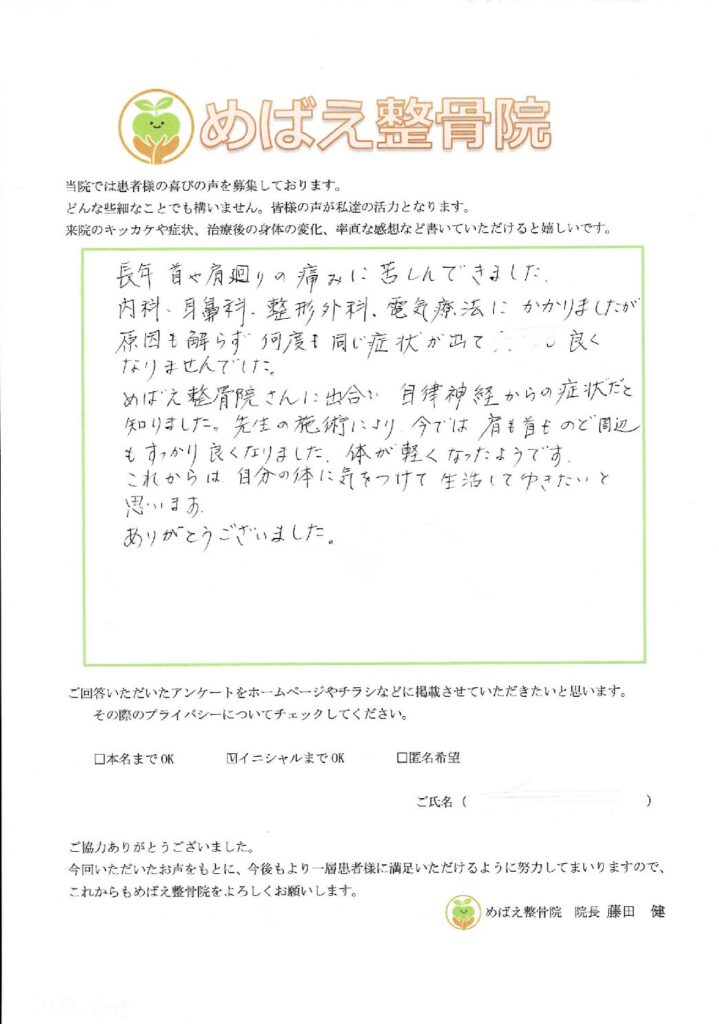 めばえ整骨院
当院では患者様の喜びの声を募集しております。
どんな些細なことでも構いません。皆様の声が私達の活力となります。
来院のキッカケや症状、治療後の身体の変化、率直な感想など書いていただけると嬉しいです。
長年 首や肩廻りの痛みに苦しんできました.
内科、耳鼻科、整形外科、電気療法に かかりましたが
原因も解らず 何度も同じ症状が出て 良く
なりませんでした。
めばえ整骨院さんに出合い 自律神経からの症状だと
知りました。先生の施術により、今では 肩も首も のど周辺
もすっかり良くなりました. 体が軽くなったようです.
これからは 自分の体に気をつけて 生活して ゆきたいと
思います.
ありがとうございました。
ご回答いただいたアンケートをホームページやチラシなどに掲載させていただきたいと思います。
その際のプライバシーについてチェックしてください。
□本名までOK ☑イニシャルまでOK □匿名希望
ご氏名( )
ご協力ありがとうございました。
今回いただいたお声をもとに、今後もより一層患者様に満足いただけるように努力してまいりますので、
これからもめばえ整骨院をよろしくお願いします。
めばえ整骨院 院長 藤田 健